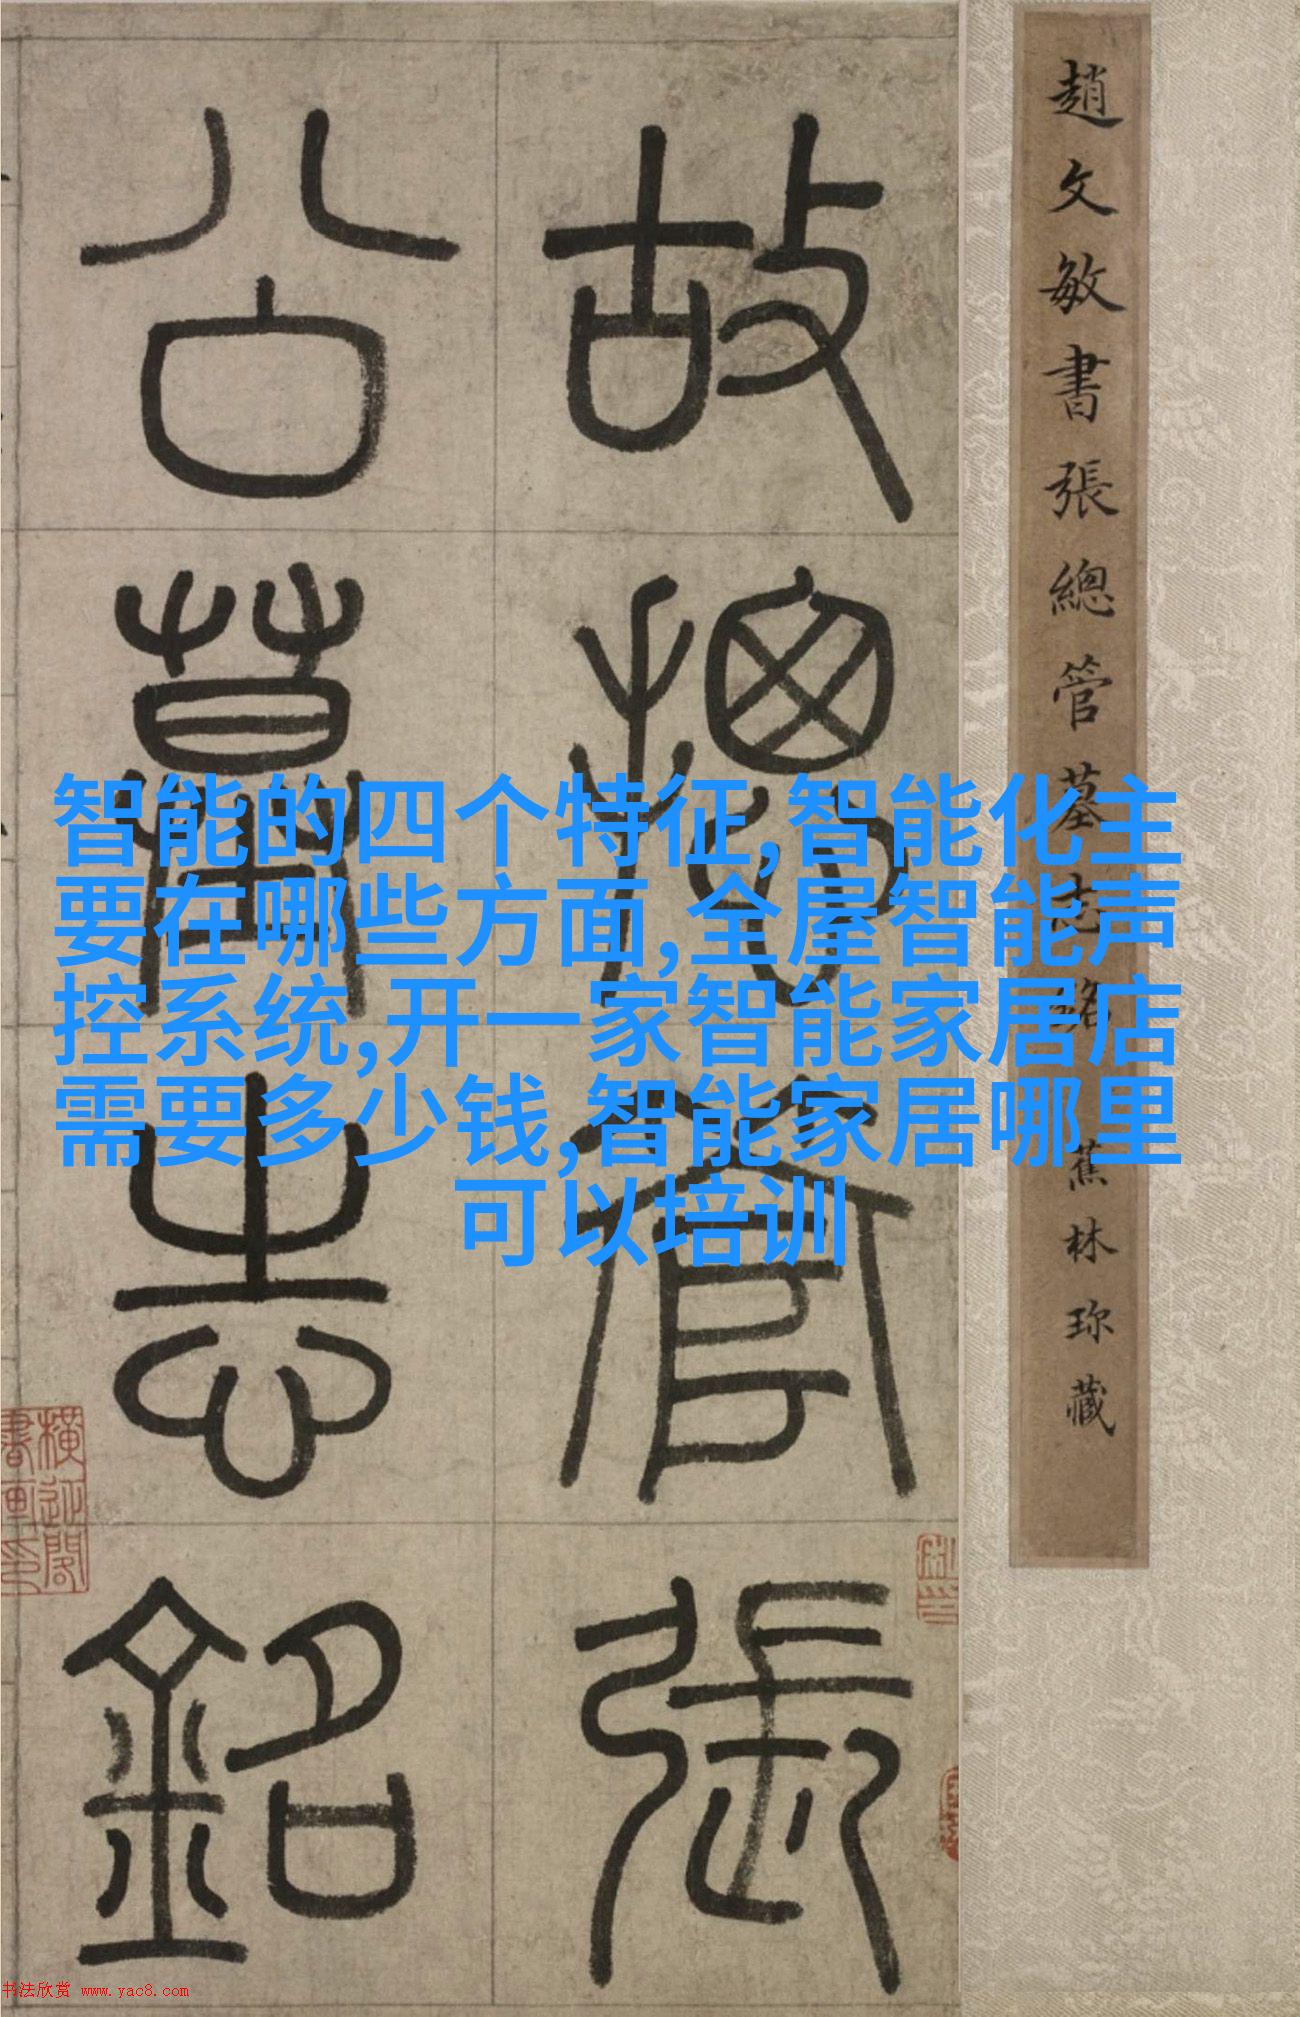 趙文敏書張總管墓志銘 蕉林珍藏
故總管張
公墓志銘
智能的四个特征,智能化主
要在哪些方面,全屋智能声
控系统,开一家智能家居店
需要多少钱,智能家居哪里
可以培训
书法欣赏 www.yac8.com